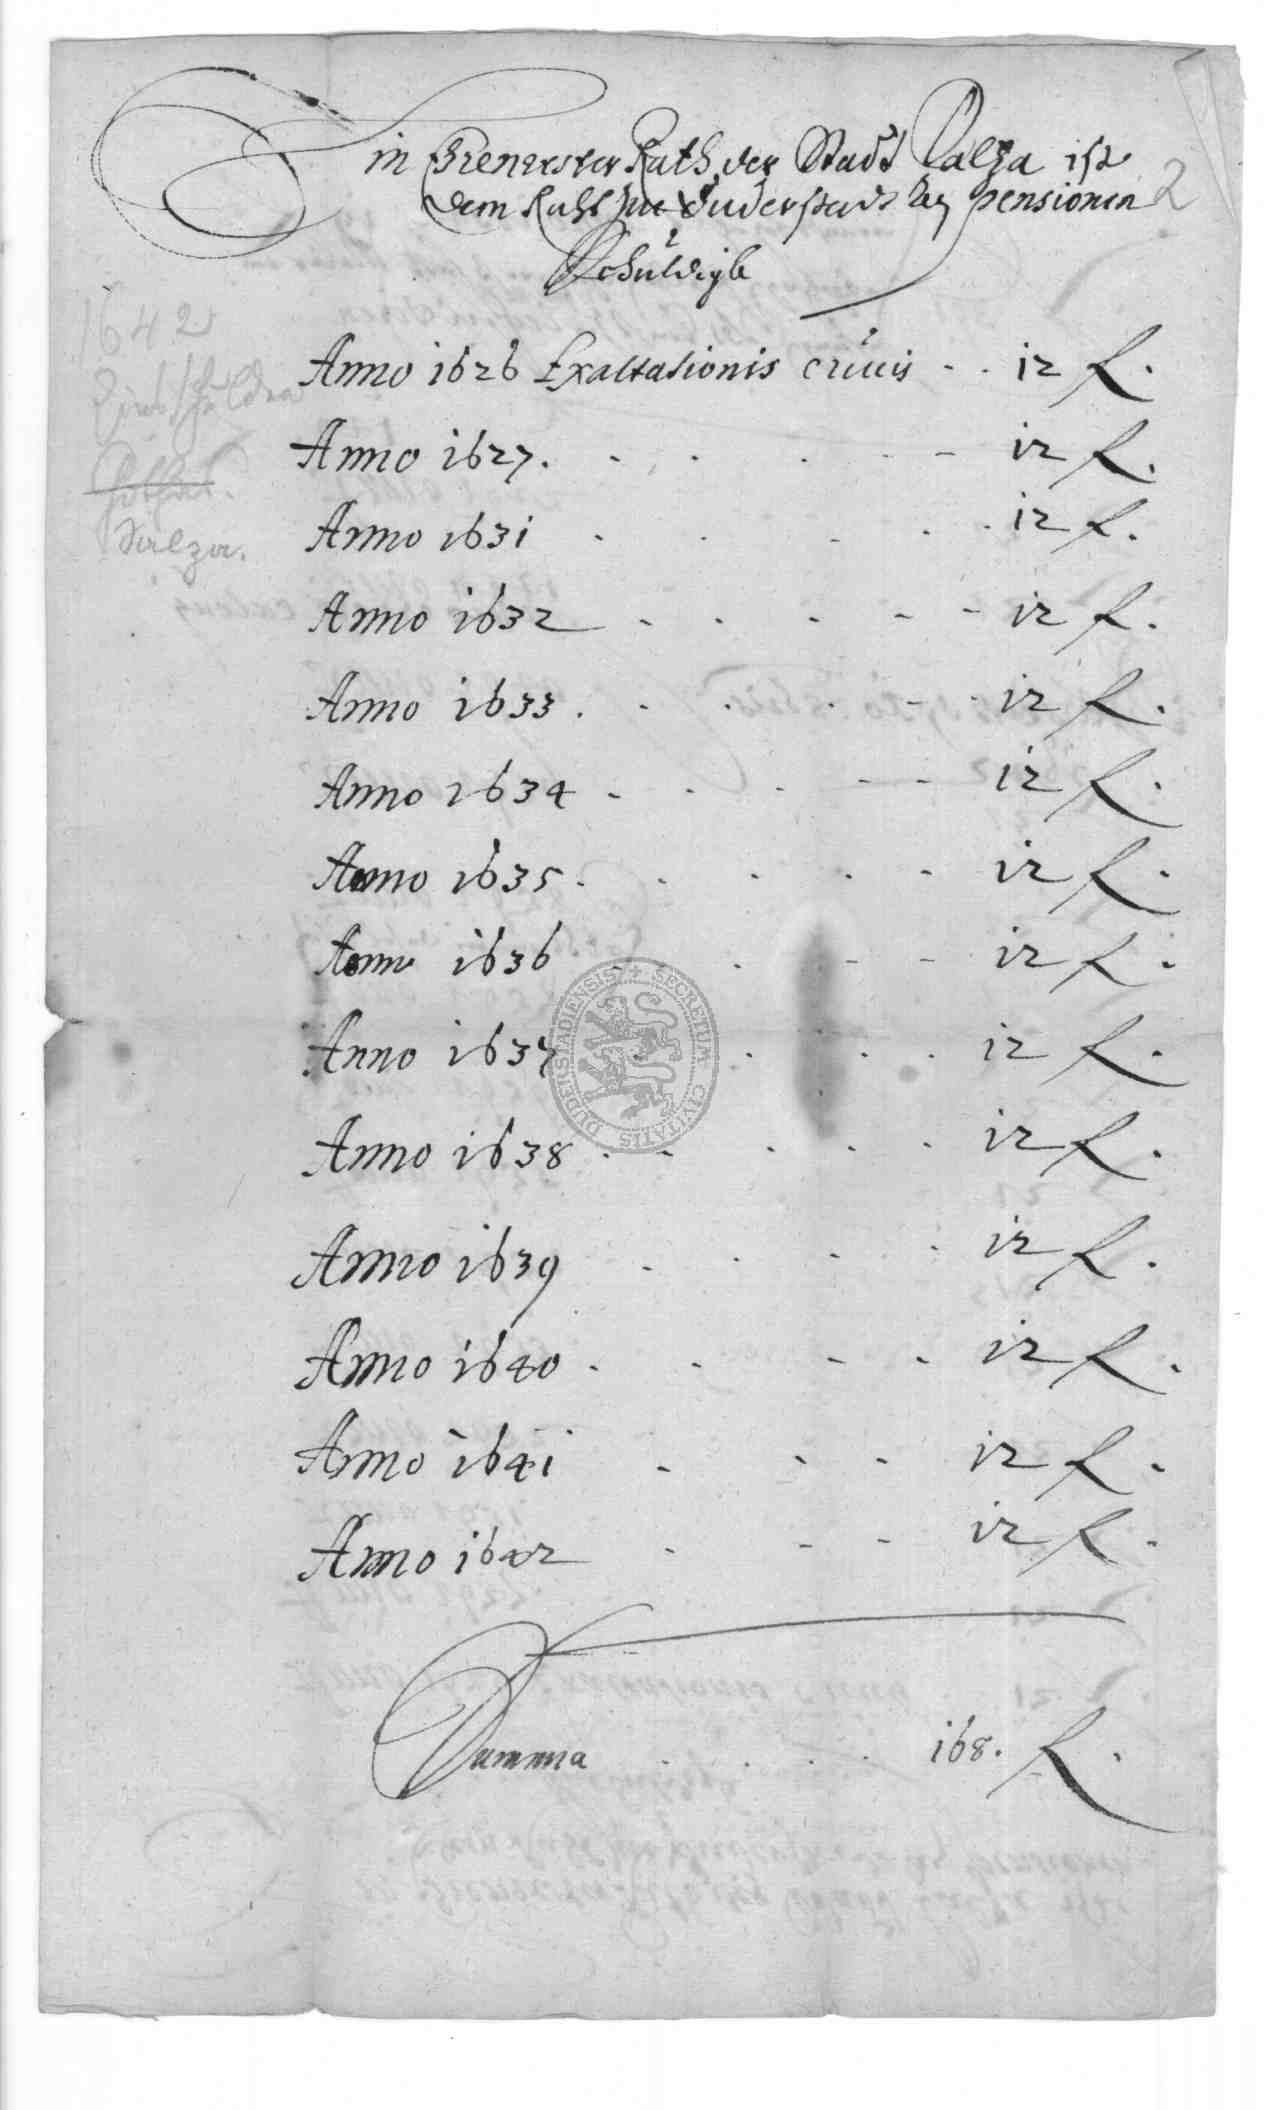 Ein Ehrnvester Rath der Stadt Salza ist
dem Raht zue Duderstadt an pensionen
Schuldigk
2
1642
Zinsschulden
Salza.
Anno 1626 Exaltationis crucis . . 12 fl.
Anno 1627 . . . . . - - 12 fl.
Anno 1631 . . . . . 12 fl.
Anno 1632 . . . - - 12 fl.
Anno 1633 . . . . - . 12 fl.
Anno 1634 . . . - - 12 fl.
Anno 1635 . . . . . 12 fl.
Anno 1636 . . - - 12 fl.
Anno 1637 . . . . 12 fl.
Anno 1638 . . . . . 12 fl.
Anno 1639 . . . . 12 fl.
Anno 1640 . . - . 12 fl.
Anno 1641 . . . 12 fl.
Anno 1642 . - - 12 fl.
Summa . . . . 168. fl.
SECRETUM CIVITATIS DUDERSTADIENSIS